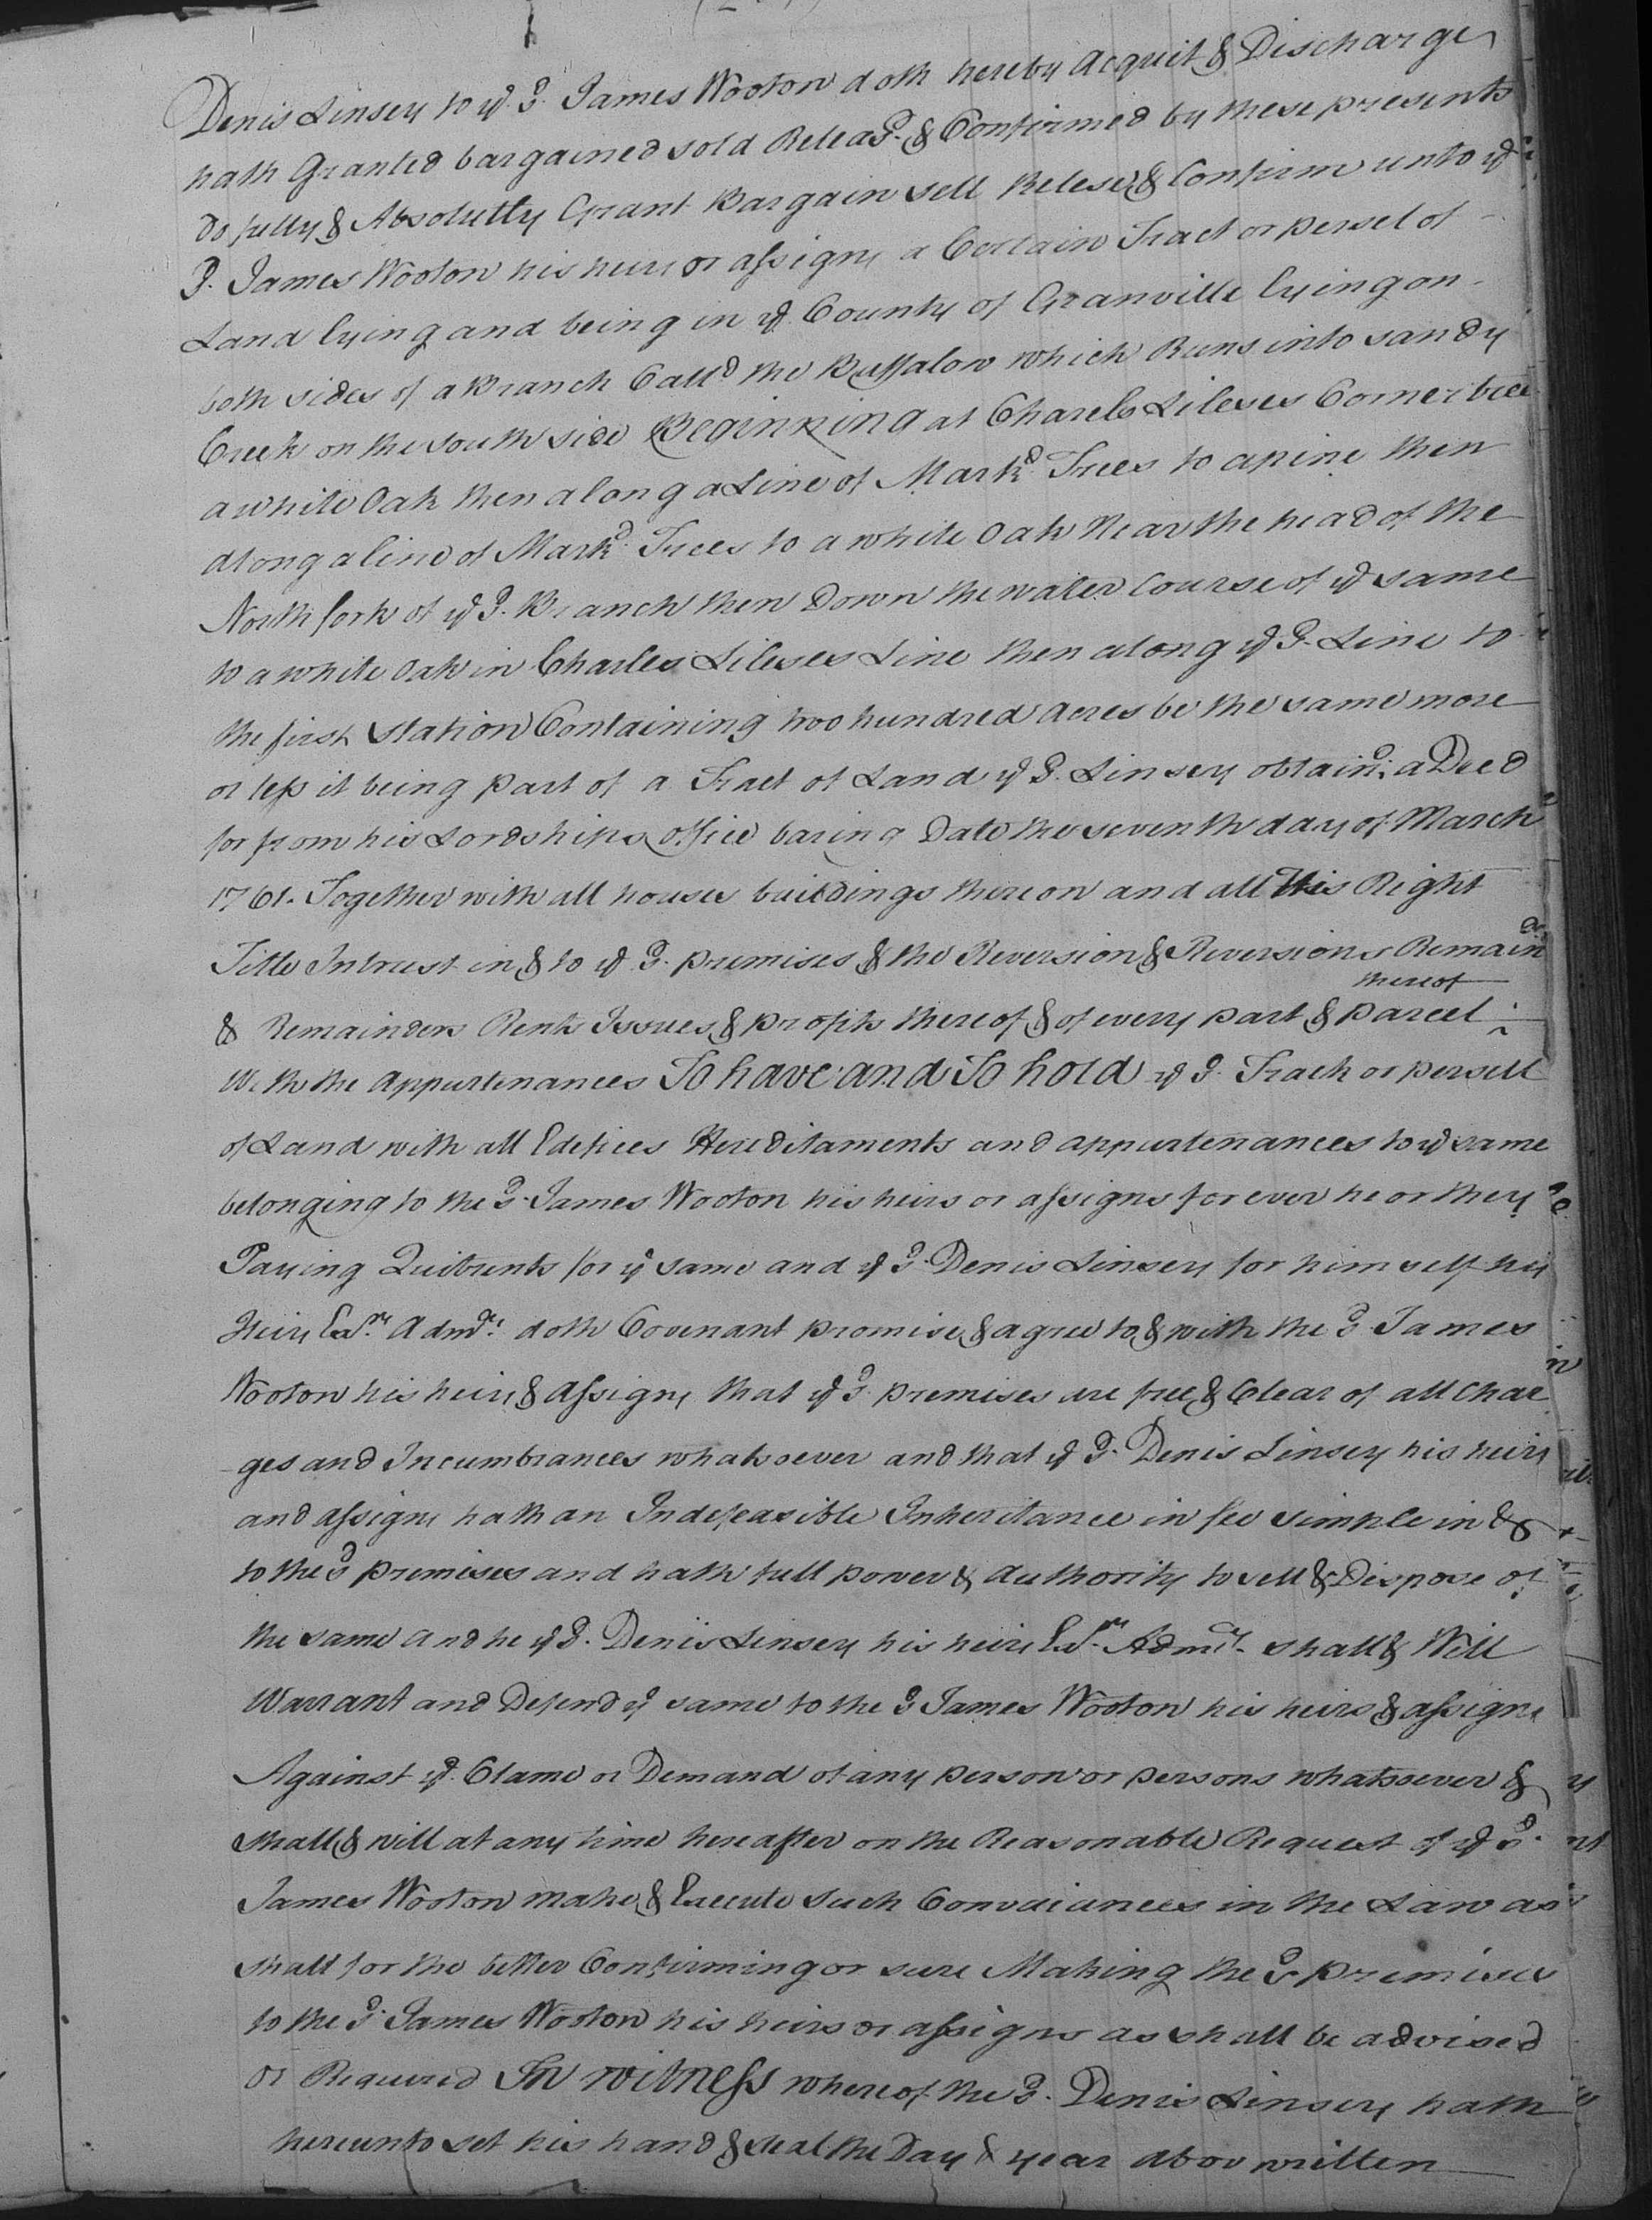 Denis Linsey to ye. sd. James Wooton doth hereby Acquit & Discharge
hath Granted bargained sold Releasd. & Confirmed by these presents
do fully & Absolutly Grant Bargain sell Relese & Confirm unto ye
sd. James Wooton his heirs or assigns a Certain Tract or persel of
Land lying and being in ye. County of Granville lying on
both sides of a Branch Calld the Buffalow which Runs into sandy
Creek on the south side Beginning at Charels Lileses Corner tree
a white Oak then along a Line of Markd. Trees to a pine then
along a line of Markd. Trees to a white Oak Near the head of the
North fork of ye sd. Branch then Down the water Course of ye same
to a white Oak in Charles Lileses Line then along ye sd. Line to
the first station Containing two hundred acres be the same more
or less it being part of a Tract of Land ye sd. Linsey obtaind. a Deed
for from his Lordships office baring Date the seventh day of March
1761. Together with all houses buildings thereon and all His Right
Title Intrust in & to ye sd. premises & the Reversion & Reversions Remainder
thereof
& Remainders Rents Issues & profits thereof & of every part & parcel
With the Appurtenances To have and To hold ye sd. Tract or persell
of Land with all Edefices Hereditaments and appurtenances to ye same
belonging to the sd. James Wooton his heirs or assigns for ever he or they
Paying Quitrents for ye same and ye sd. Denis Linsey for himself his
Heirs Exrs. Admrs. doth Covenant promise & agree to & with the sd. James
Wooton his heirs & Assigns that ye sd. premises are free & Clear of all Char
ges and Incumbrances whatsoever and that ye sd. Denis Linsey his heirs
and assigns hath an Indefeasible Inheritance in fee simple in &
to the sd premises and hath full power & Authority to sell & Dispose of
the same and he ye sd. Denis Linsey his heirs Exrs. Admrs. shall & Will
Warrant and Defend ye same to the sd James Wooton his heirs & assigns
Against ye. Clame or Demand of any person or persons whatsoever &
shall & will at any time hereafter on the Reasonable Request of ye sd.
James Wooton make & Execute such Convaiances in the Law as
shall for the better Confirming or sure Making the sd premises
to the sd. James Wooton his heirs or assigns as shall be advised
or Required In witness whereof the sd. Denis Linsey hath
hereunto set his hand & seal the Day & year abov written